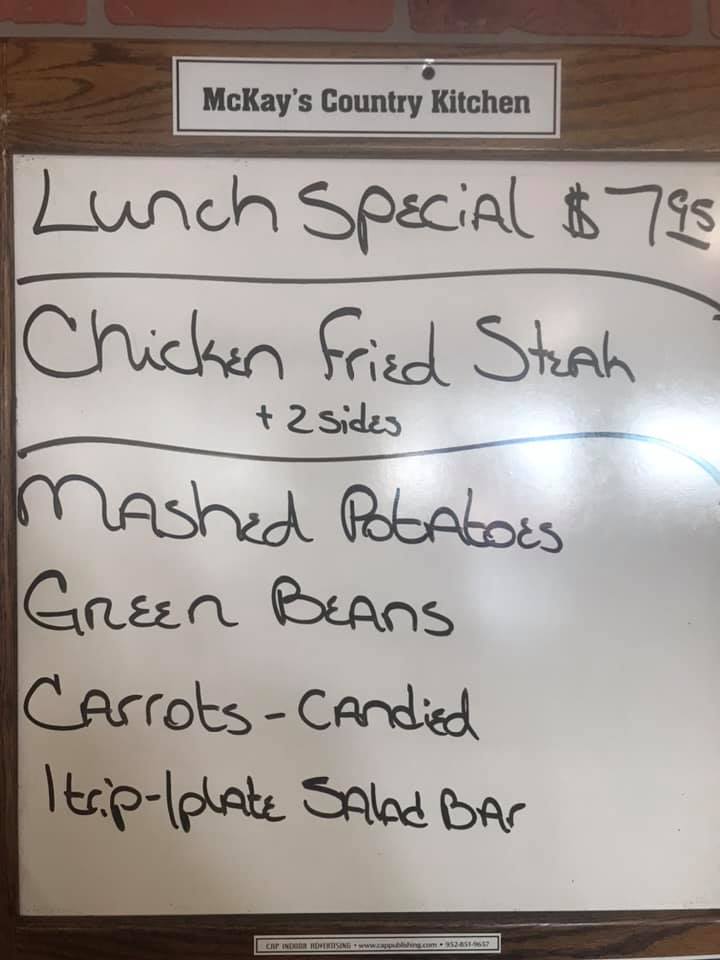 McKay's Country Kitchen
Lunch Special $7.95
Chicken Fried Steak
+ 2 sides
Mashed Potatoes
Green Beans
Carrots - Candied
1 trip - 1 plate Salad Bar
CAP INDOOR ADVERTISING • www.cappublishing.com • 952-851-9657